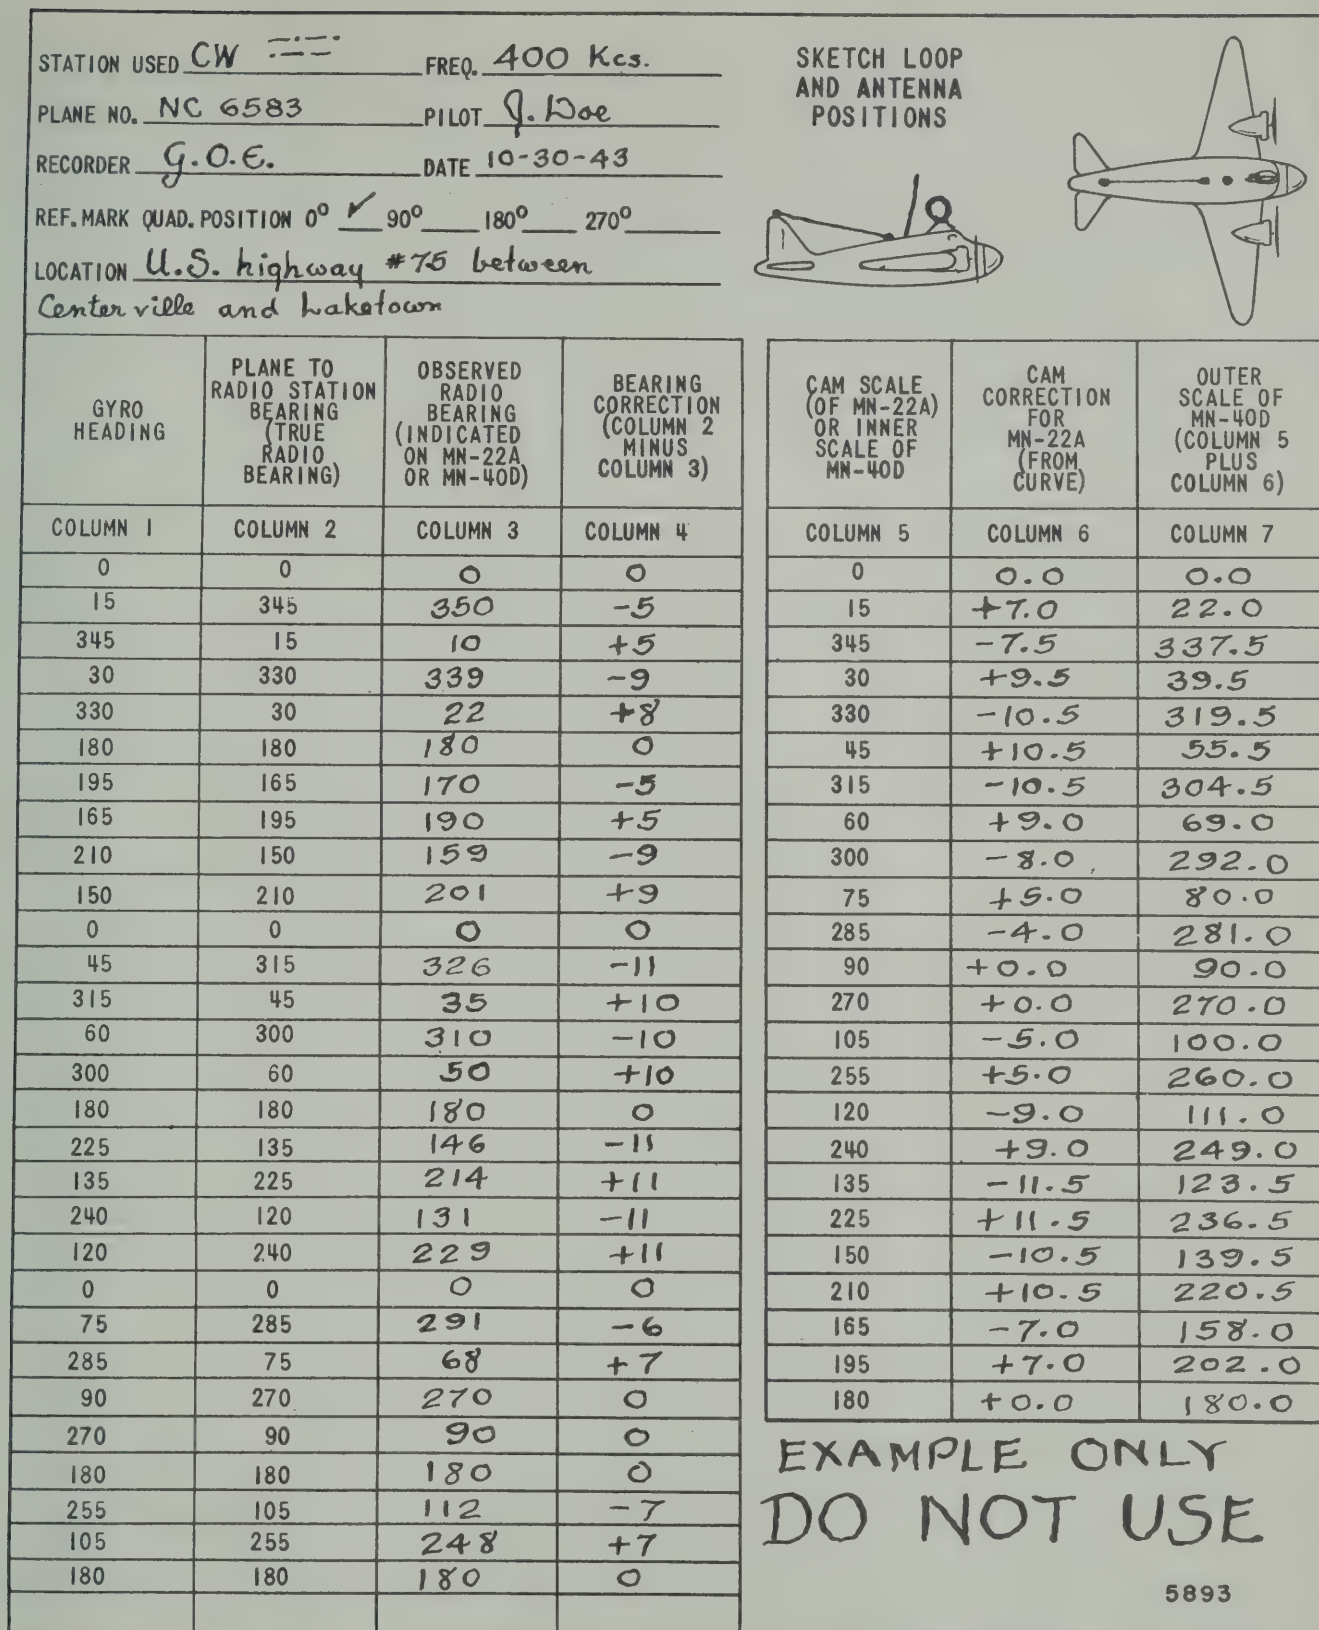 STATION USED CW FREQ. 400 Kcs.
PLANE NO. NC 6583 PILOT J. Doe
RECORDER G.O.E. DATE 10-30-43
REF. MARK QUAD. POSITION 0° ✓ 90° 180° 270°
LOCATION U.S. highway #75 between
Centerville and Laketown
SKETCH LOOP
AND ANTENNA
POSITIONS
GYRO
HEADING
PLANE TO
RADIO STATION
BEARING
(TRUE
RADIO
BEARING)
OBSERVED
RADIO
BEARING
(INDICATED
ON MN-22A
OR MN-40D)
BEARING
CORRECTION
(COLUMN 2
MINUS
COLUMN 3)
COLUMN 1 COLUMN 2 COLUMN 3 COLUMN 4
0 0 0 0
15 345 350 -5
345 15 10 +5
30 330 339 -9
330 30 22 +8
180 180 180 0
195 165 170 -5
165 195 190 +5
210 150 159 -9
150 210 201 +9
0 0 0 0
45 315 326 -11
315 45 35 +10
60 300 310 -10
300 60 50 +10
180 180 180 0
225 135 146 -11
135 225 214 +11
240 120 131 -11
120 240 229 +11
0 0 0 0
75 285 291 -6
285 75 68 +7
90 270 270 0
270 90 90 0
180 180 180 0
255 105 112 -7
105 255 248 +7
180 180 180 0
CAM SCALE
(OF MN-22A)
OR INNER
SCALE OF
MN-40D
CAM
CORRECTION
FOR
MN-22A
(FROM
CURVE)
OUTER
SCALE OF
MN-40D
(COLUMN 5
PLUS
COLUMN 6)
COLUMN 5 COLUMN 6 COLUMN 7
0 0.0 0.0
15 +7.0 22.0
345 -7.5 337.5
30 +9.5 39.5
330 -10.5 319.5
45 +10.5 55.5
315 -10.5 304.5
60 +9.0 69.0
300 -8.0 292.0
75 +5.0 80.0
285 -4.0 281.0
90 +0.0 90.0
270 +0.0 270.0
105 -5.0 100.0
255 +5.0 260.0
120 -9.0 111.0
240 +9.0 249.0
135 -11.5 123.5
225 +11.5 236.5
150 -10.5 139.5
210 +10.5 220.5
165 -7.0 158.0
195 +7.0 202.0
180 +0.0 180.0
EXAMPLE ONLY
DO NOT USE
5893